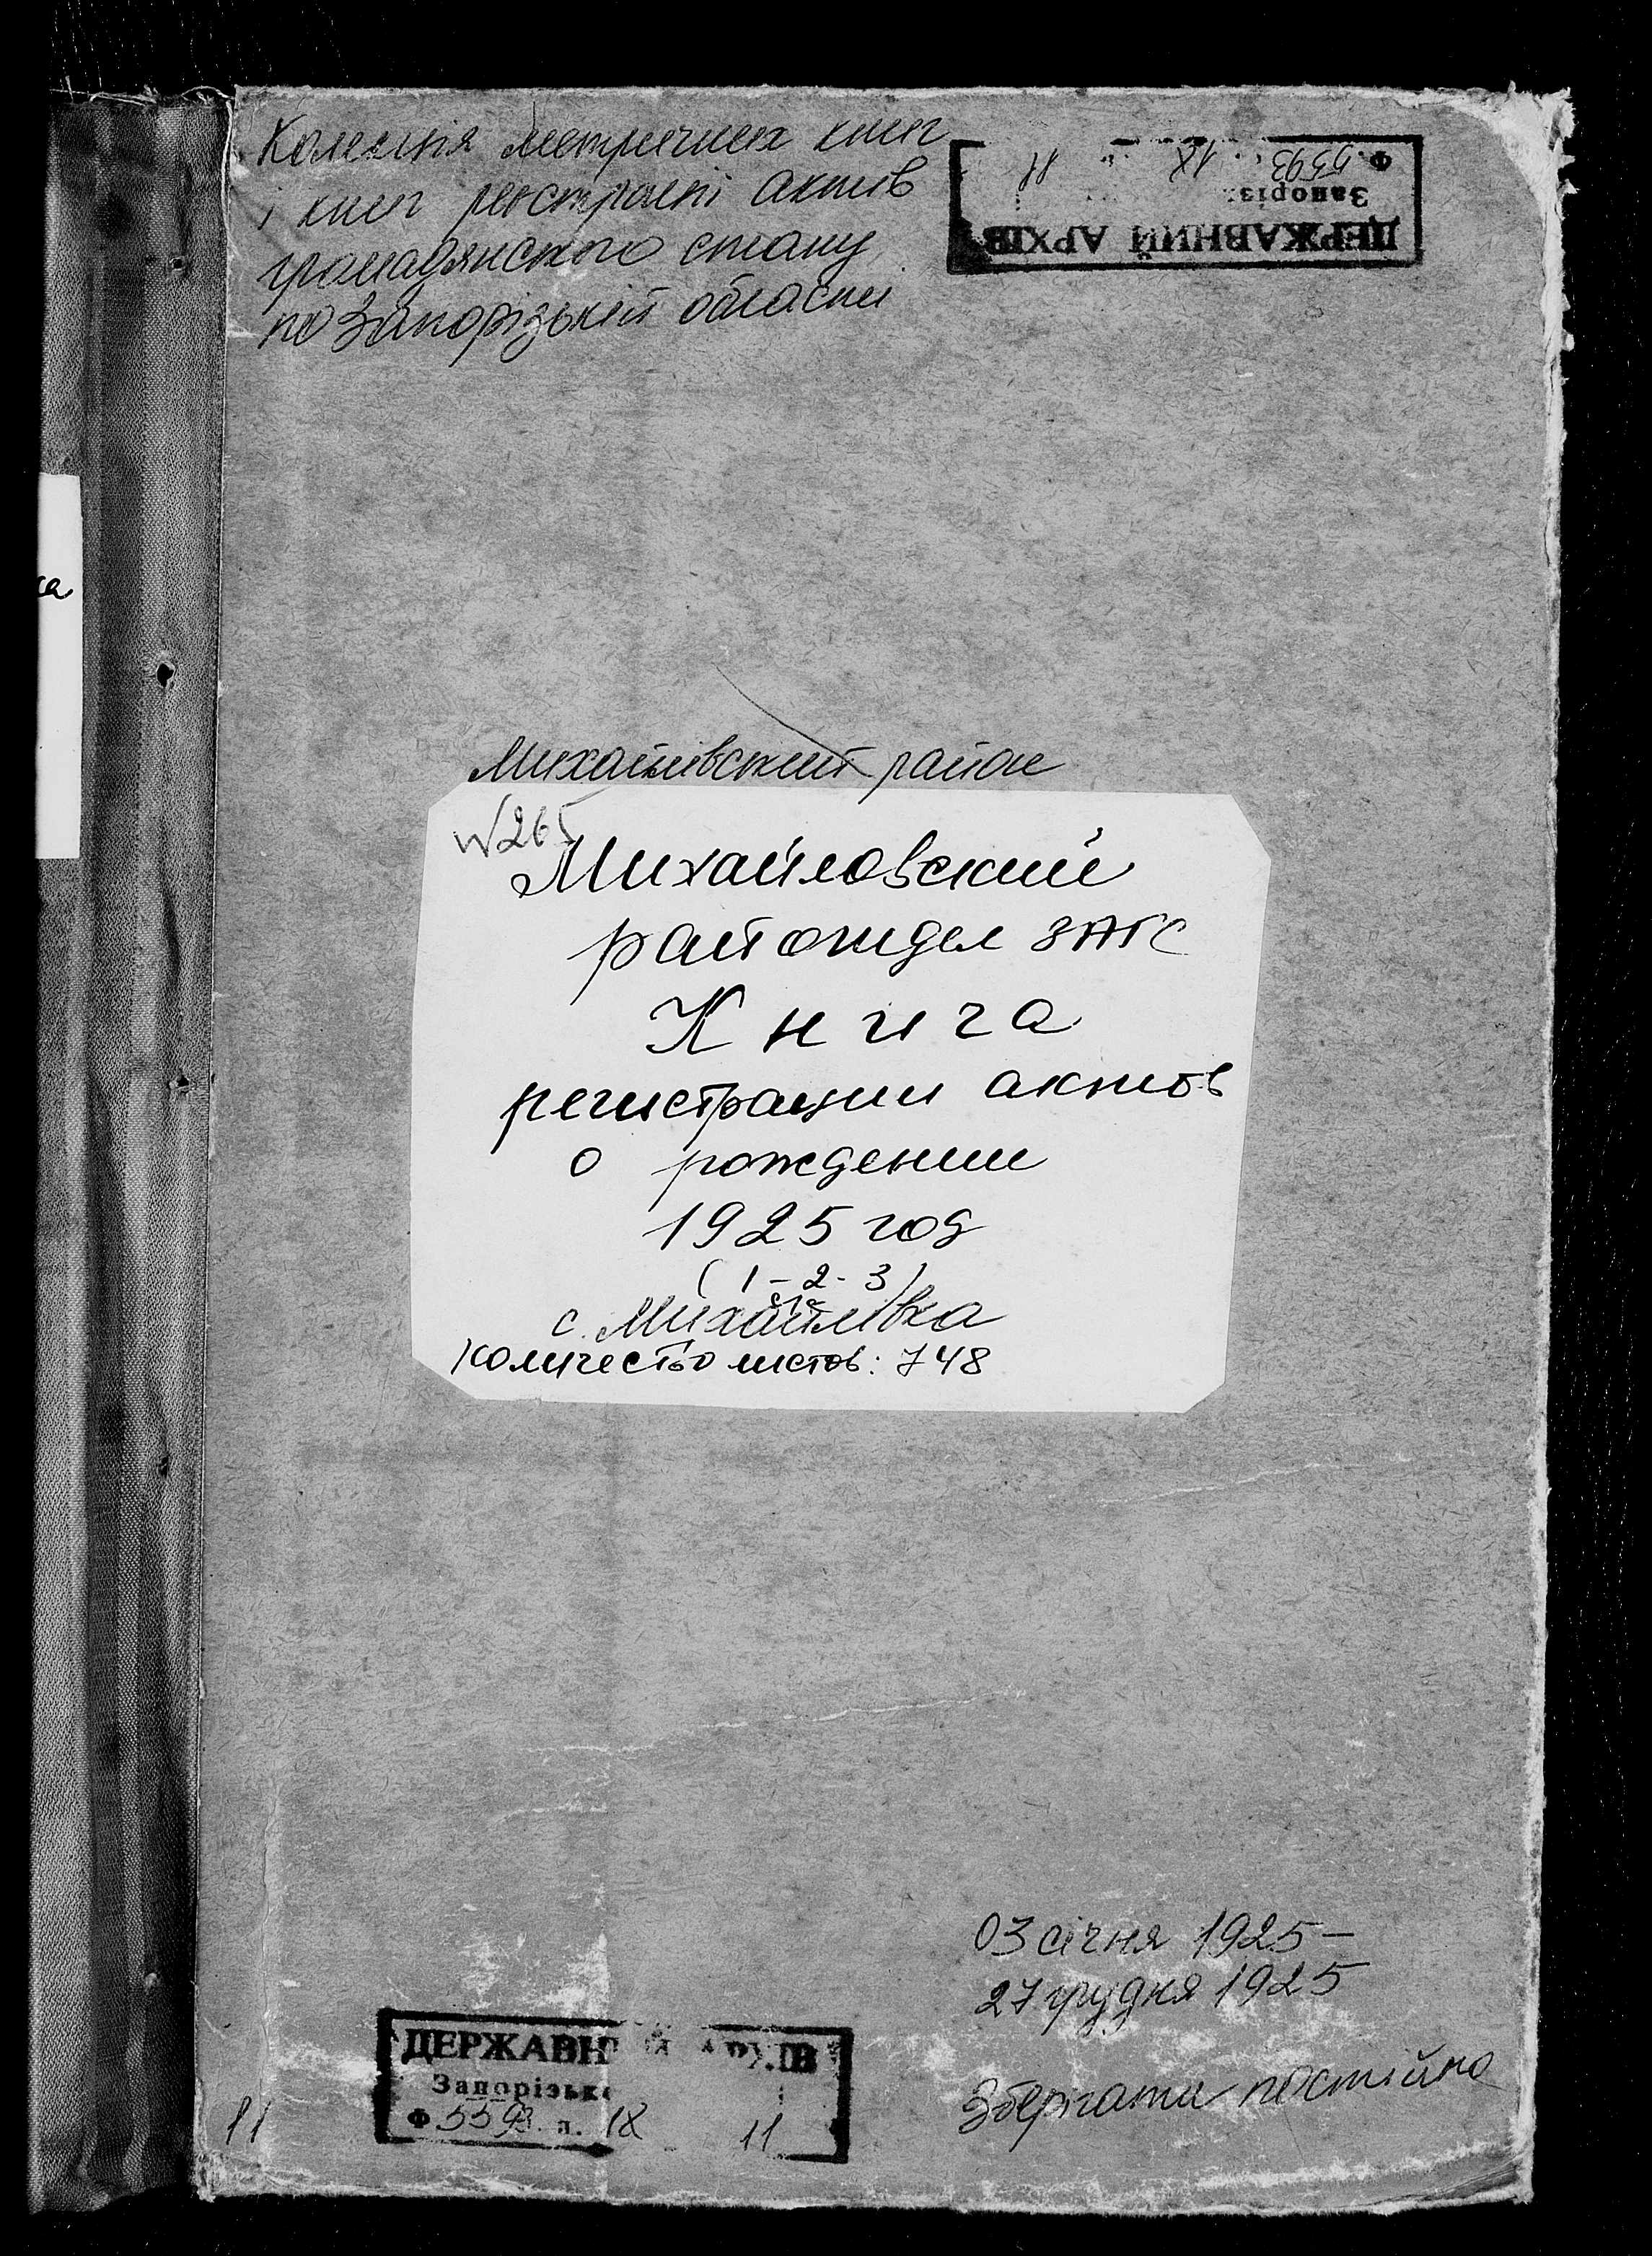 Колекція метричних книг
і книг реєстрації актів
громадянського стану
по Запорізькій області
ДЕРЖАВНИЙ АРХІВ
Запоріз
Ф. 5593 18 11
ка
Михайлівський район
№265
Михайловский
райотдел ЗАГС
Книга
регистрации актов
о рождении
1925 год
(1-2-3)
с. Михайлівка
Количество листов: 748
03 січня 1925 –
27 грудня 1925
Зберігати постійно
ДЕРЖАВНИЙ АРХІВ
Запорізько
Ф 5593 л. 18 11
11